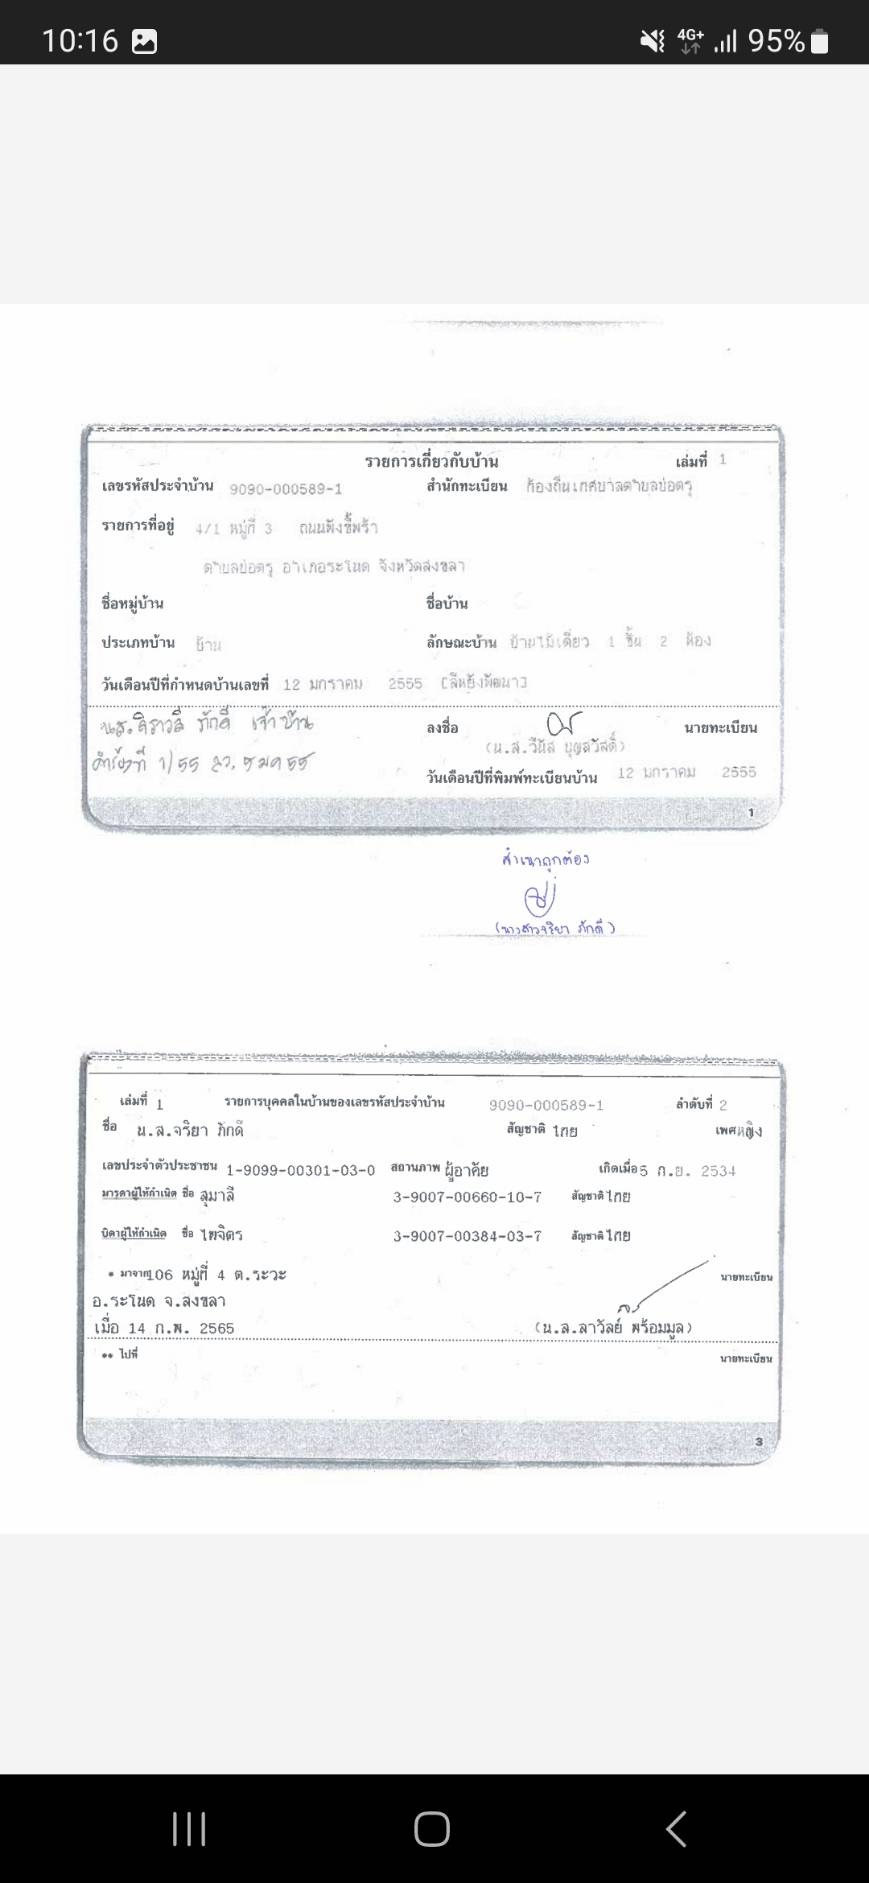 10:16 4G+ 95%
รายการเกี่ยวกับบ้าน เล่มที่ 1
เลขรหัสประจำบ้าน 9090-000589-1 สำนักทะเบียน ท้องถิ่นเทศบาลตำบลบ่อตรุ
รายการที่อยู่ 4/1 หมู่ที่ 3 ถนนพังขี้พร้า
ตำบลบ่อตรุ อำเภอระโนด จังหวัดสงขลา
ชื่อหมู่บ้าน ชื่อบ้าน
ประเภทบ้าน บ้าน ลักษณะบ้าน บ้านไม้เดี่ยว 1 ชั้น 2 ห้อง
วันเดือนปีที่กำหนดบ้านเลขที่ 12 มกราคม 2555
ภักดี เจ้าบ้าน ลงชื่อ นายทะเบียน
(น.ส.วีนัส บุญสวัสดิ์)
คำร้องที่ 1/55 วันเดือนปีที่พิมพ์ทะเบียนบ้าน 12 มกราคม 2555
1
สำเนาถูกต้อง
(นางสาวจริยา ภักดี)
เล่มที่ 1 รายการบุคคลในบ้านของเลขรหัสประจำบ้าน 9090-000589-1 ลำดับที่ 2
ชื่อ น.ส.จริยา ภักดี สัญชาติ ไทย เพศ หญิง
เลขประจำตัวประชาชน 1-9099-00301-03-0 สถานภาพ ผู้อาศัย เกิดเมื่อ 5 ก.ย. 2534
มารดาผู้ให้กำเนิด ชื่อ สุมาลี 3-9007-00660-10-7 สัญชาติ ไทย
บิดาผู้ให้กำเนิด ชื่อ ไพจิตร 3-9007-00384-03-7 สัญชาติ ไทย
* มาจาก 106 หมู่ที่ 4 ต.ระวะ นายทะเบียน
อ.ระโนด จ.สงขลา
เมื่อ 14 ก.พ. 2565 (น.ส.ลาวัลย์ พร้อมมูล)
** ไปที่ นายทะเบียน
3